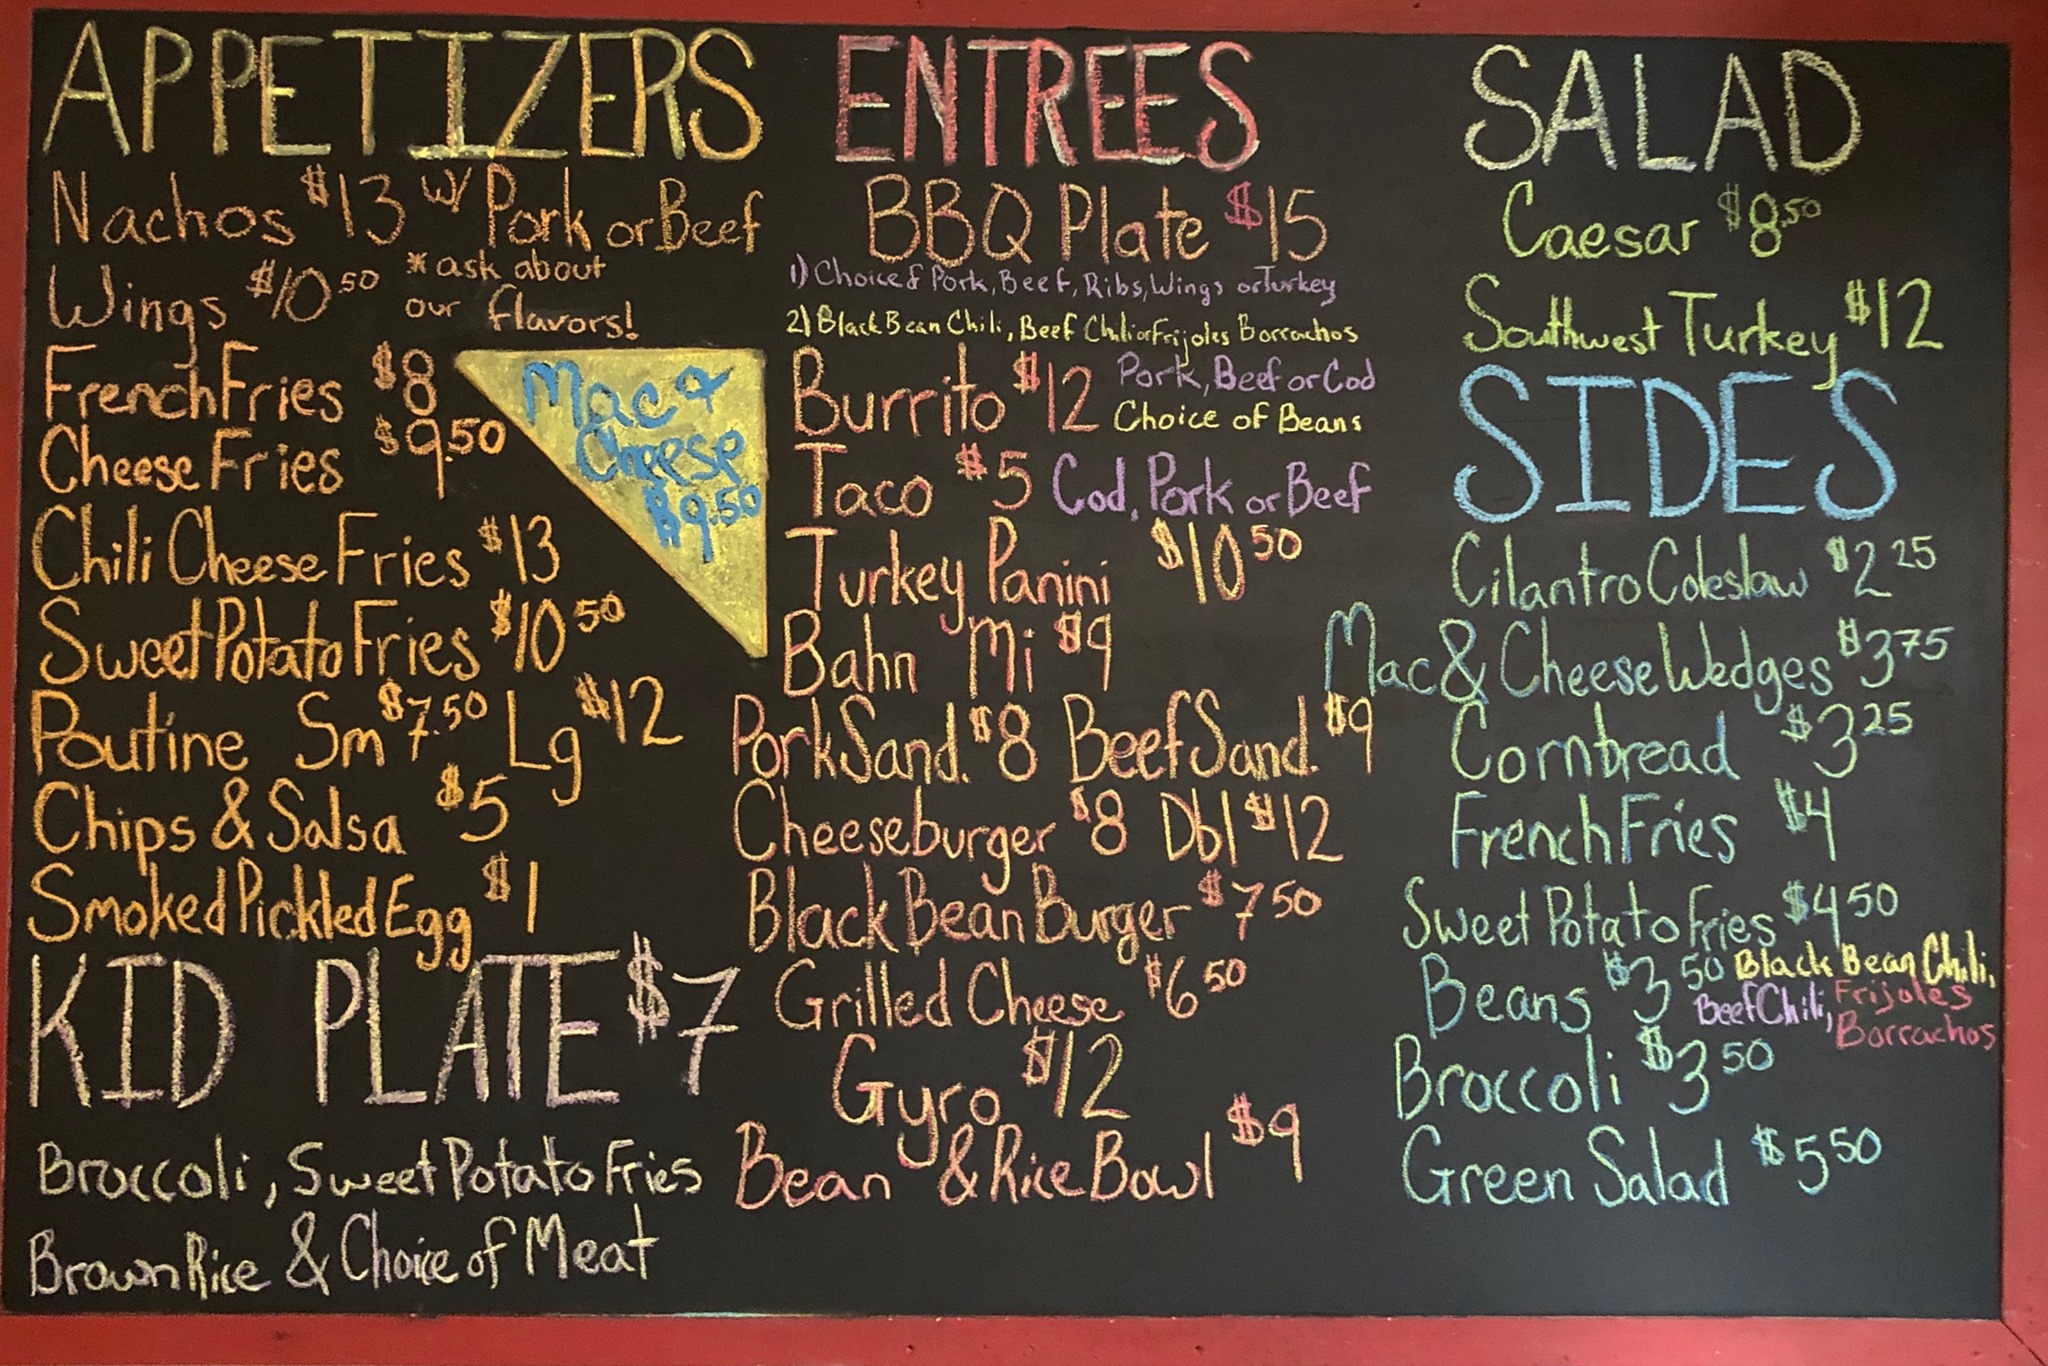 APPETIZERS
Nachos $13 w/ Pork or Beef
Wings $10.50 *ask about
our flavors!
French Fries $8
Cheese Fries $9.50
Mac &
Cheese
$9.50
Chili Cheese Fries $13
Sweet Potato Fries $10.50
Poutine Sm $7.50 Lg $12
Chips & Salsa $5
Smoked Pickled Egg $1
KID PLATE $7
Broccoli, Sweet Potato Fries
Brown Rice & Choice of Meat
ENTREES
BBQ Plate $15
1) Choice of Pork, Beef, Ribs, Wings or Turkey
2) Black Bean Chili, Beef Chili or Frijoles Borrachos
Burrito $12 Pork, Beef or Cod
Choice of Beans
Taco $5 Cod, Pork or Beef
Turkey Panini $10.50
Bahn Mi $9
Pork Sand. $8 Beef Sand. $9
Cheeseburger $8 Dbl $12
Black Bean Burger $7.50
Grilled Cheese $6.50
Gyro $12
Bean & Rice Bowl $9
SALAD
Caesar $8.50
Southwest Turkey $12
SIDES
Cilantro Coleslaw $2.25
Mac & Cheese Wedges $3.75
Cornbread $3.25
French Fries $4
Sweet Potato Fries $4.50
Beans $3.50 Black Bean Chili,
Beef Chili, Frijoles
Borrachos
Broccoli $3.50
Green Salad $5.50